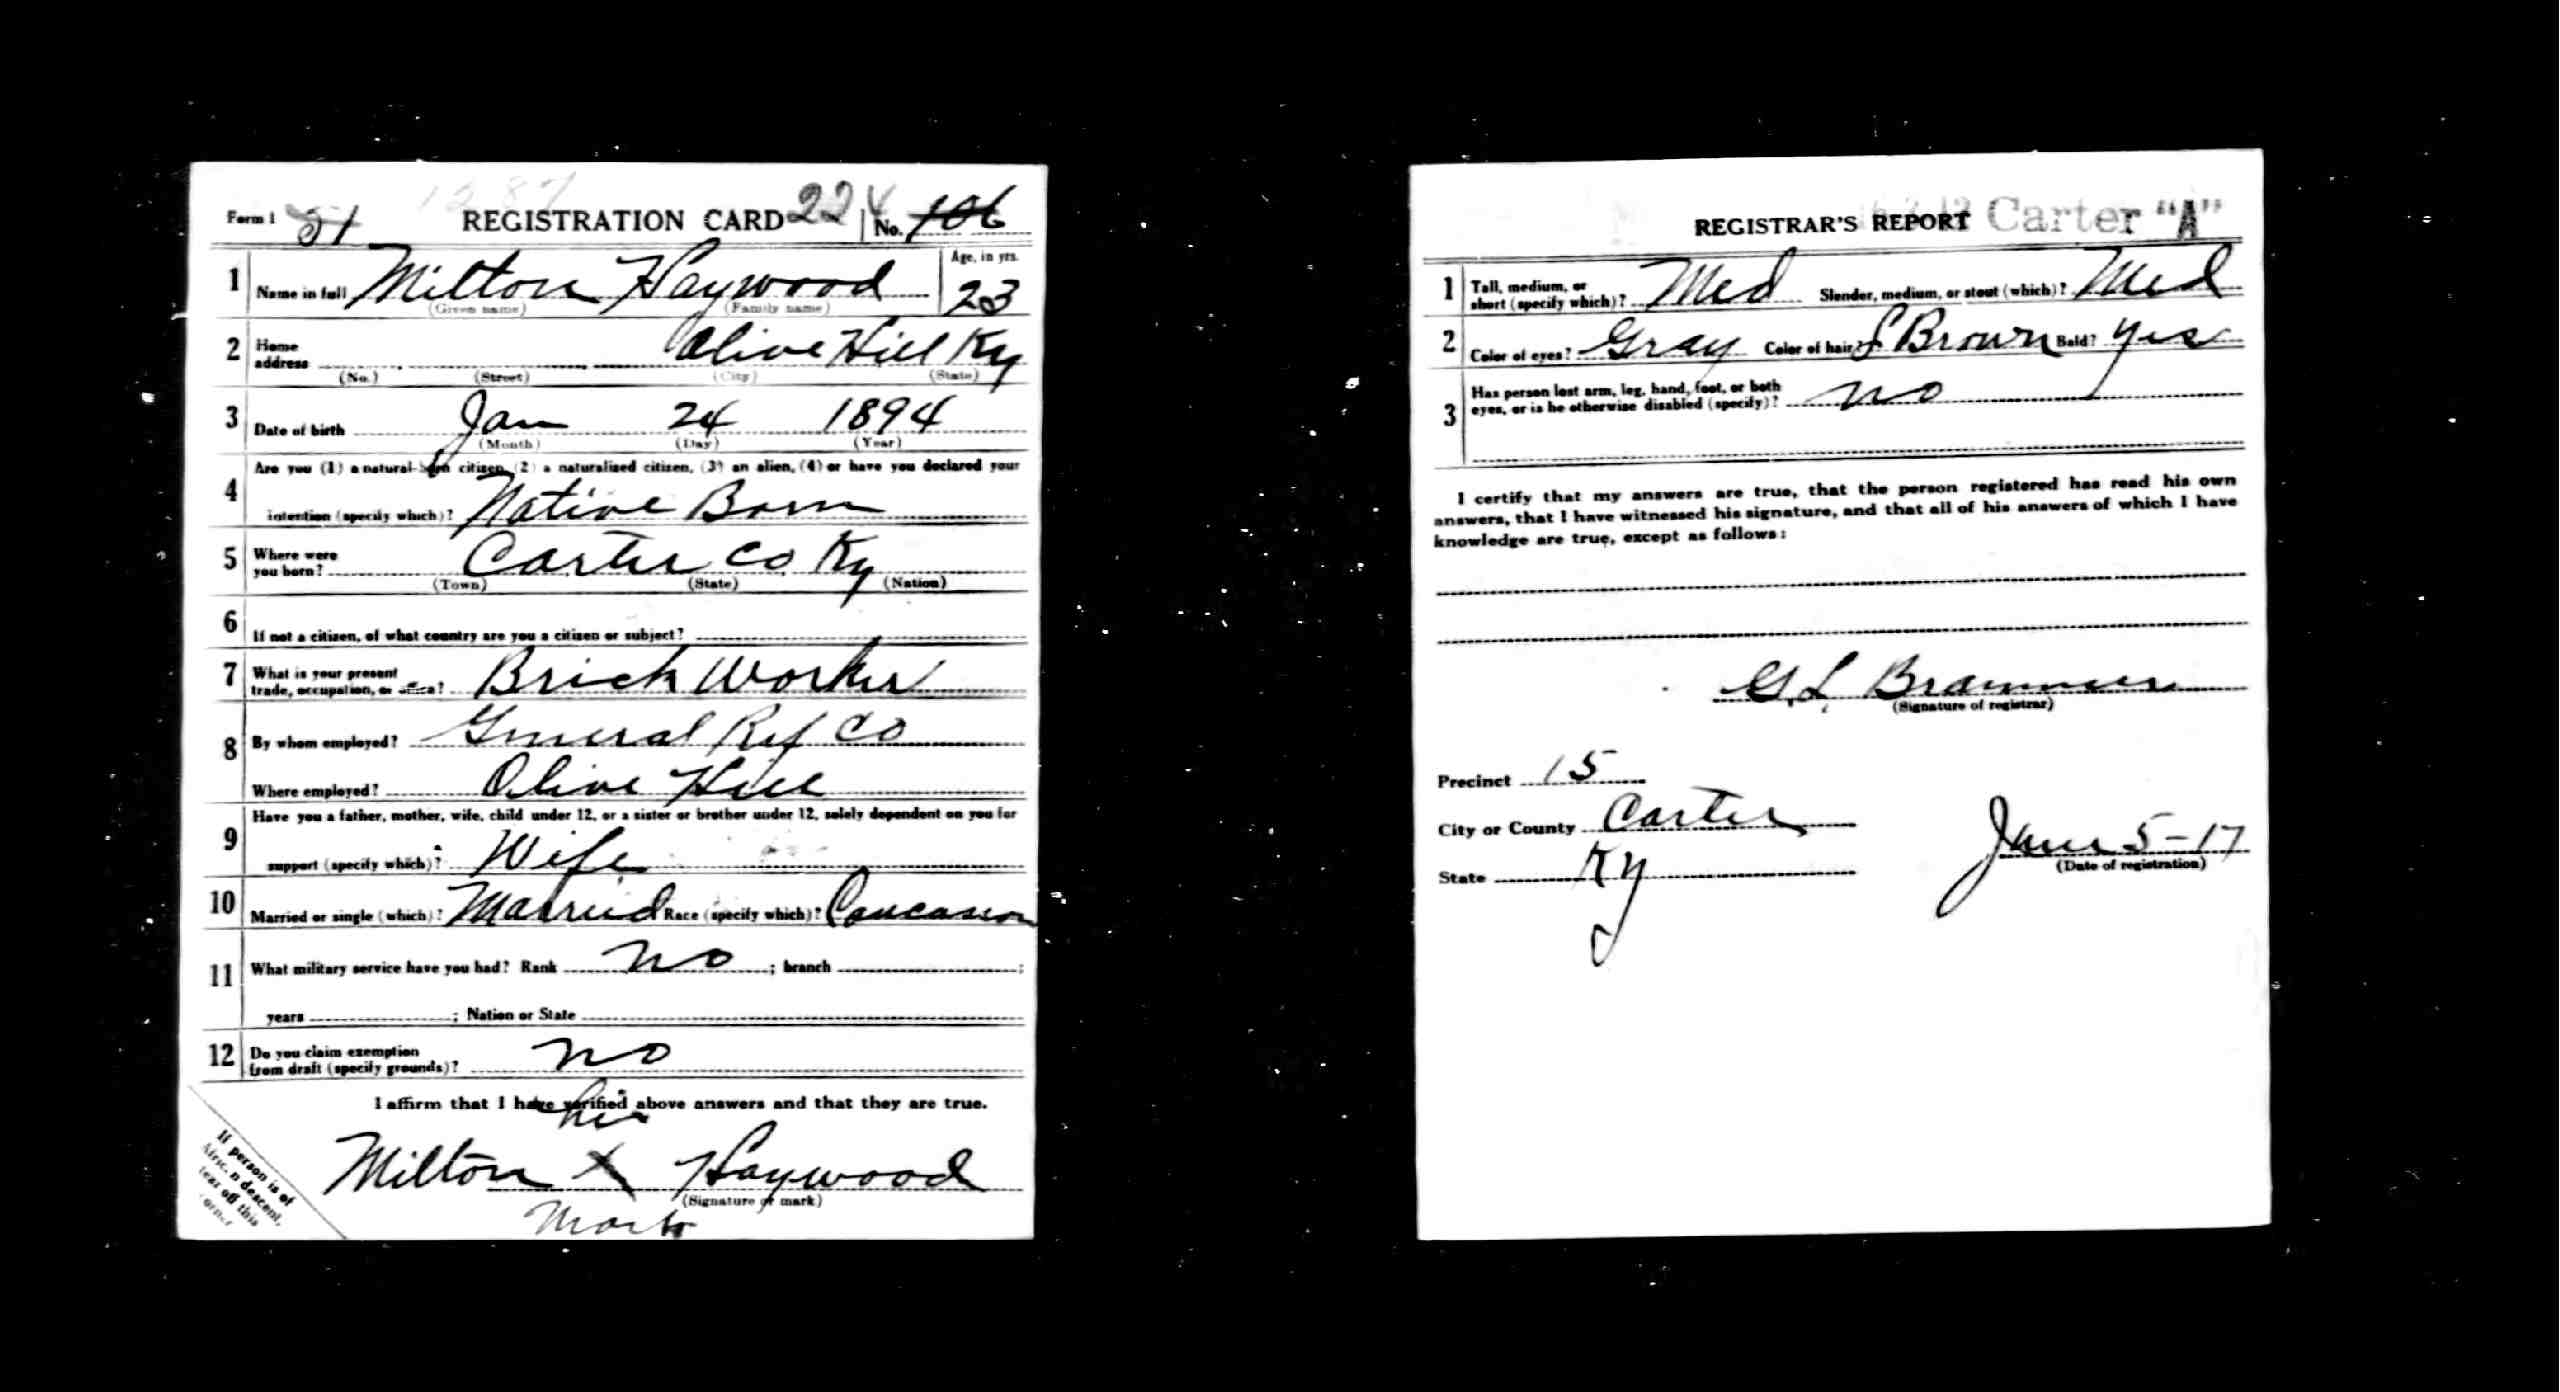 Form 1 51 REGISTRATION CARD 224 No. 106
1 Name in full Milton Haywood Age, in yrs. 23
(Given name) (Family name)
2 Home address Olive Hill Ky
(No.) (Street) (City) (State)
3 Date of birth Jan 24 1894
(Month) (Day) (Year)
Are you (1) a natural-born citizen, (2) a naturalized citizen, (3) an alien, (4) or have you declared your
4 intention (specify which)? Native Born
5 Where were you born? Carter Co Ky
(Town) (State) (Nation)
6 If not a citizen, of what country are you a citizen or subject?
7 What is your present trade, occupation, or office? Brick Worker
8 By whom employed? General Ref Co
Where employed? Olive Hill
Have you a father, mother, wife, child under 12, or a sister or brother under 12, solely dependent on you for
9 support (specify which)? Wife
10 Married or single (which)? Married Race (specify which)? Caucasion
11 What military service have you had? Rank no ; branch ;
years ; Nation or State
12 Do you claim exemption from draft (specify grounds)? no
I affirm that I have verified above answers and that they are true.
his
Milton X Haywood
(Signature or mark)
Mark
If person is of
African descent,
tear off this
corner
REGISTRAR'S REPORT Carter "A"
1 Tall, medium, or short (specify which)? Med Slender, medium, or stout (which)? Med
2 Color of eyes? Gray Color of hair? L Brown Bald? yes
Has person lost arm, leg, hand, foot, or both
3 eyes, or is he otherwise disabled (specify)? no
I certify that my answers are true, that the person registered has read his own
answers, that I have witnessed his signature, and that all of his answers of which I have
knowledge are true, except as follows:
G. L. Brammer
(Signature of registrar)
Precinct 15
City or County Carter
State Ky
June 5-17
(Date of registration)